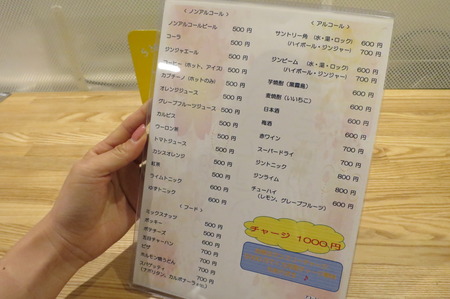 ＜ノンアルコール＞
ノンアルコールビール 500円
コーラ 500円
ジンジャエール 500円
コーヒー（ホット、アイス） 500円
カプチーノ（ホットのみ） 500円
オレンジジュース 500円
グレープフルーツジュース 500円
カルピス 500円
ウーロン茶 500円
トマトジュース 500円
カシスオレンジ 500円
紅茶 500円
ライムトニック 600円
ゆずトニック 600円
＜フード＞
ミックスナッツ 500円
ポッキー 500円
ポテチーズ 500円
石焼チャーハン 700円
ピザ 700円
ホルモン焼うどん 700円
スパゲッティ 700円
（ナポリタン、カルボナーラetc.）
＜アルコール＞
サントリー角（水・湯・ロック） 600円
（ハイボール・ジンジャー） 700円
ジンビーム（水・湯・ロック） 600円
（ハイボール・ジンジャー） 700円
芋焼酎（黒霧島） 600円
麦焼酎（いいちこ） 600円
日本酒 600円
梅酒 600円
赤ワイン 600円
スーパードライ 700円
ジントニック 700円
ジンライム 700円
チューハイ 700円
（レモン、グレープフルーツ）
チャージ 1000円